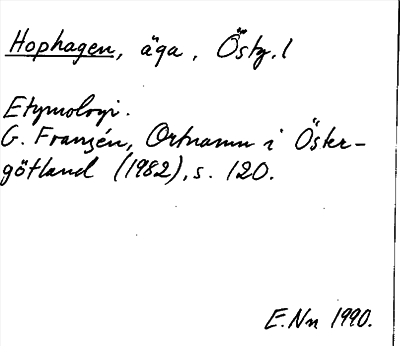 Hophagen, äga, Östg. l
Etymologi.
G. Franzén, Ortnamn i Öster-
götland (1982), s. 120.
E. Nn 1990.